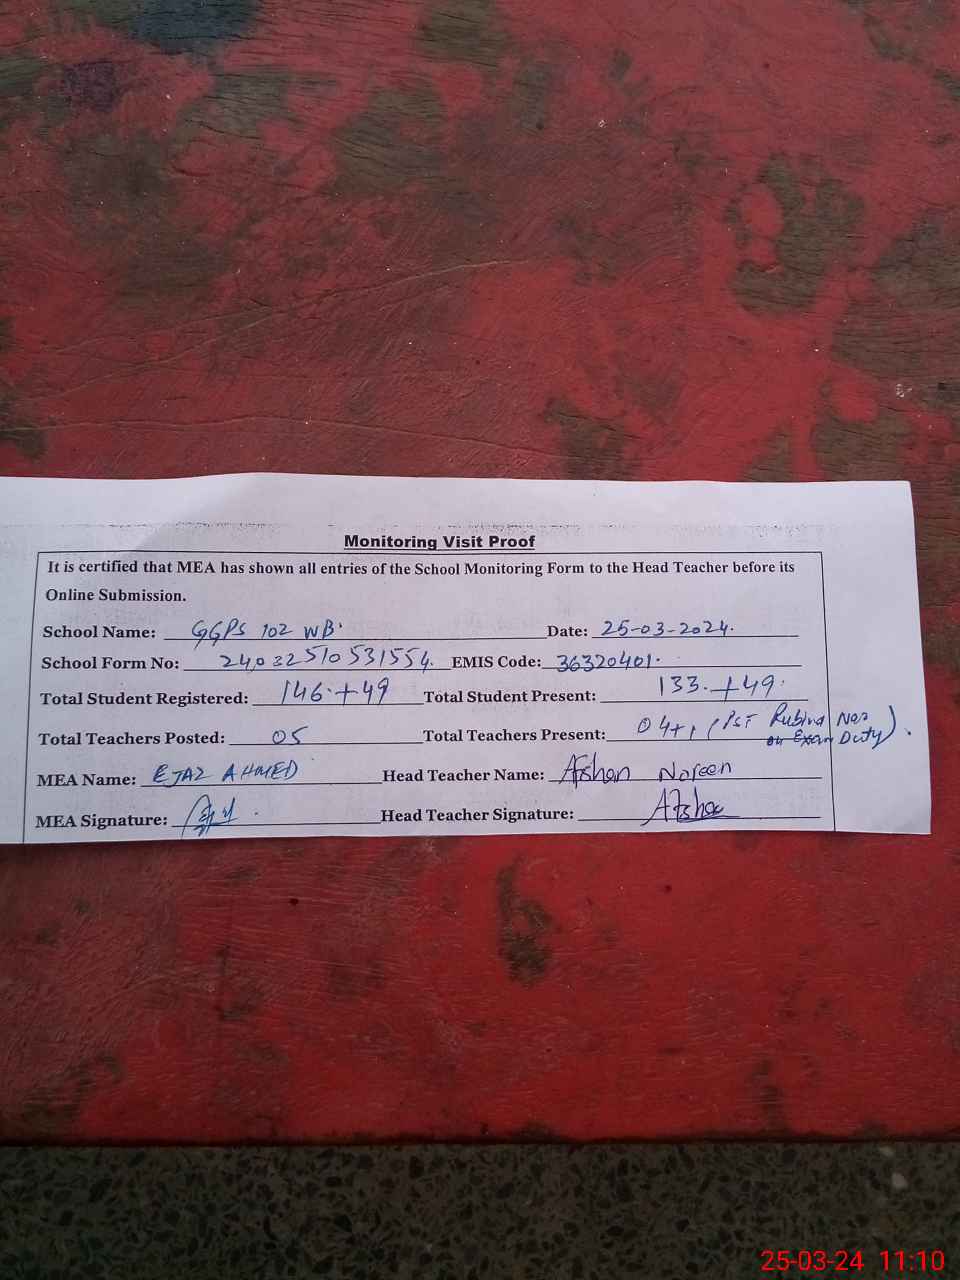 Monitoring Visit Proof
It is certified that MEA has shown all entries of the School Monitoring Form to the Head Teacher before its
Online Submission.
School Name: GGPS 102 WB. Date: 25-03-2024.
School Form No: 24032510531554. EMIS Code: 36320401.
Total Student Registered: 146.+49 Total Student Present: 133.+49.
Total Teachers Posted: 05 Total Teachers Present: 04+1 (PST Rubina Naz
on Exam Duty).
MEA Name: EJAZ AHMED Head Teacher Name: Afshan Noreen
MEA Signature: Head Teacher Signature: Afshan
25-03-24 11:10